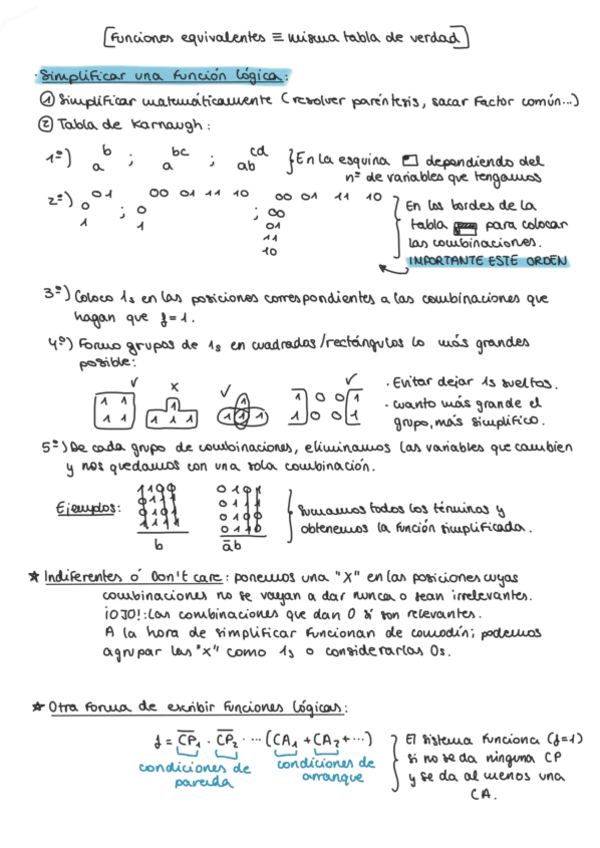 [Funciones equivalentes ≡ misma tabla de verdad]
· Simplificar una función lógica:
① Simplificar matemáticamente (resolver paréntesis, sacar factor común...)
② Tabla de Karnaugh:
1º) a b ; a bc ; ab cd } En la esquina dependiendo del
nº de variables que tengamos
2º) 0 1 ; 00 01 11 10 ; 00 01 11 10 } En los bordes de la
0 ; 0 ; 00 tabla para colocar
1 1 01 las combinaciones.
11 IMPORTANTE ESTE ORDEN
10
3º) Coloco 1s en las posiciones correspondientes a las combinaciones que
hagan que f=1.
4º) Formo grupos de 1s en cuadrados/rectángulos lo más grandes
posible:
✓ x ✓ ✓
1 1 1 1 1 0 0 1 · Evitar dejar 1s sueltos.
1 1 1 1 1 1 1 1 1 0 0 1 · cuanto más grande el
grupo, más simplifico.
5º) De cada grupo de combinaciones, eliminamos las variables que cambien
y nos quedamos con una sola combinación.
Ejemplos: } Sumamos todos los términos y
obtenemos la función simplificada.
b a̅b
★ Indiferentes ó Don't care: ponemos una "X" en las posiciones cuyas
combinaciones no se vayan a dar nunca o sean irrelevantes.
¡OJO!: Las combinaciones que dan 0 sí son relevantes.
A la hora de simplificar funcionan de comodín; podemos
agrupar las "x" como 1s o considerarlas 0s.
★ Otra forma de escribir funciones lógicas:
f = C̅P̅₁ · C̅P̅₂ · ... (CA₁ + CA₂ + ...) } El sistema funciona (f=1)
condiciones de parada condiciones de arranque si no se da ninguna CP
y se da al menos una
CA.